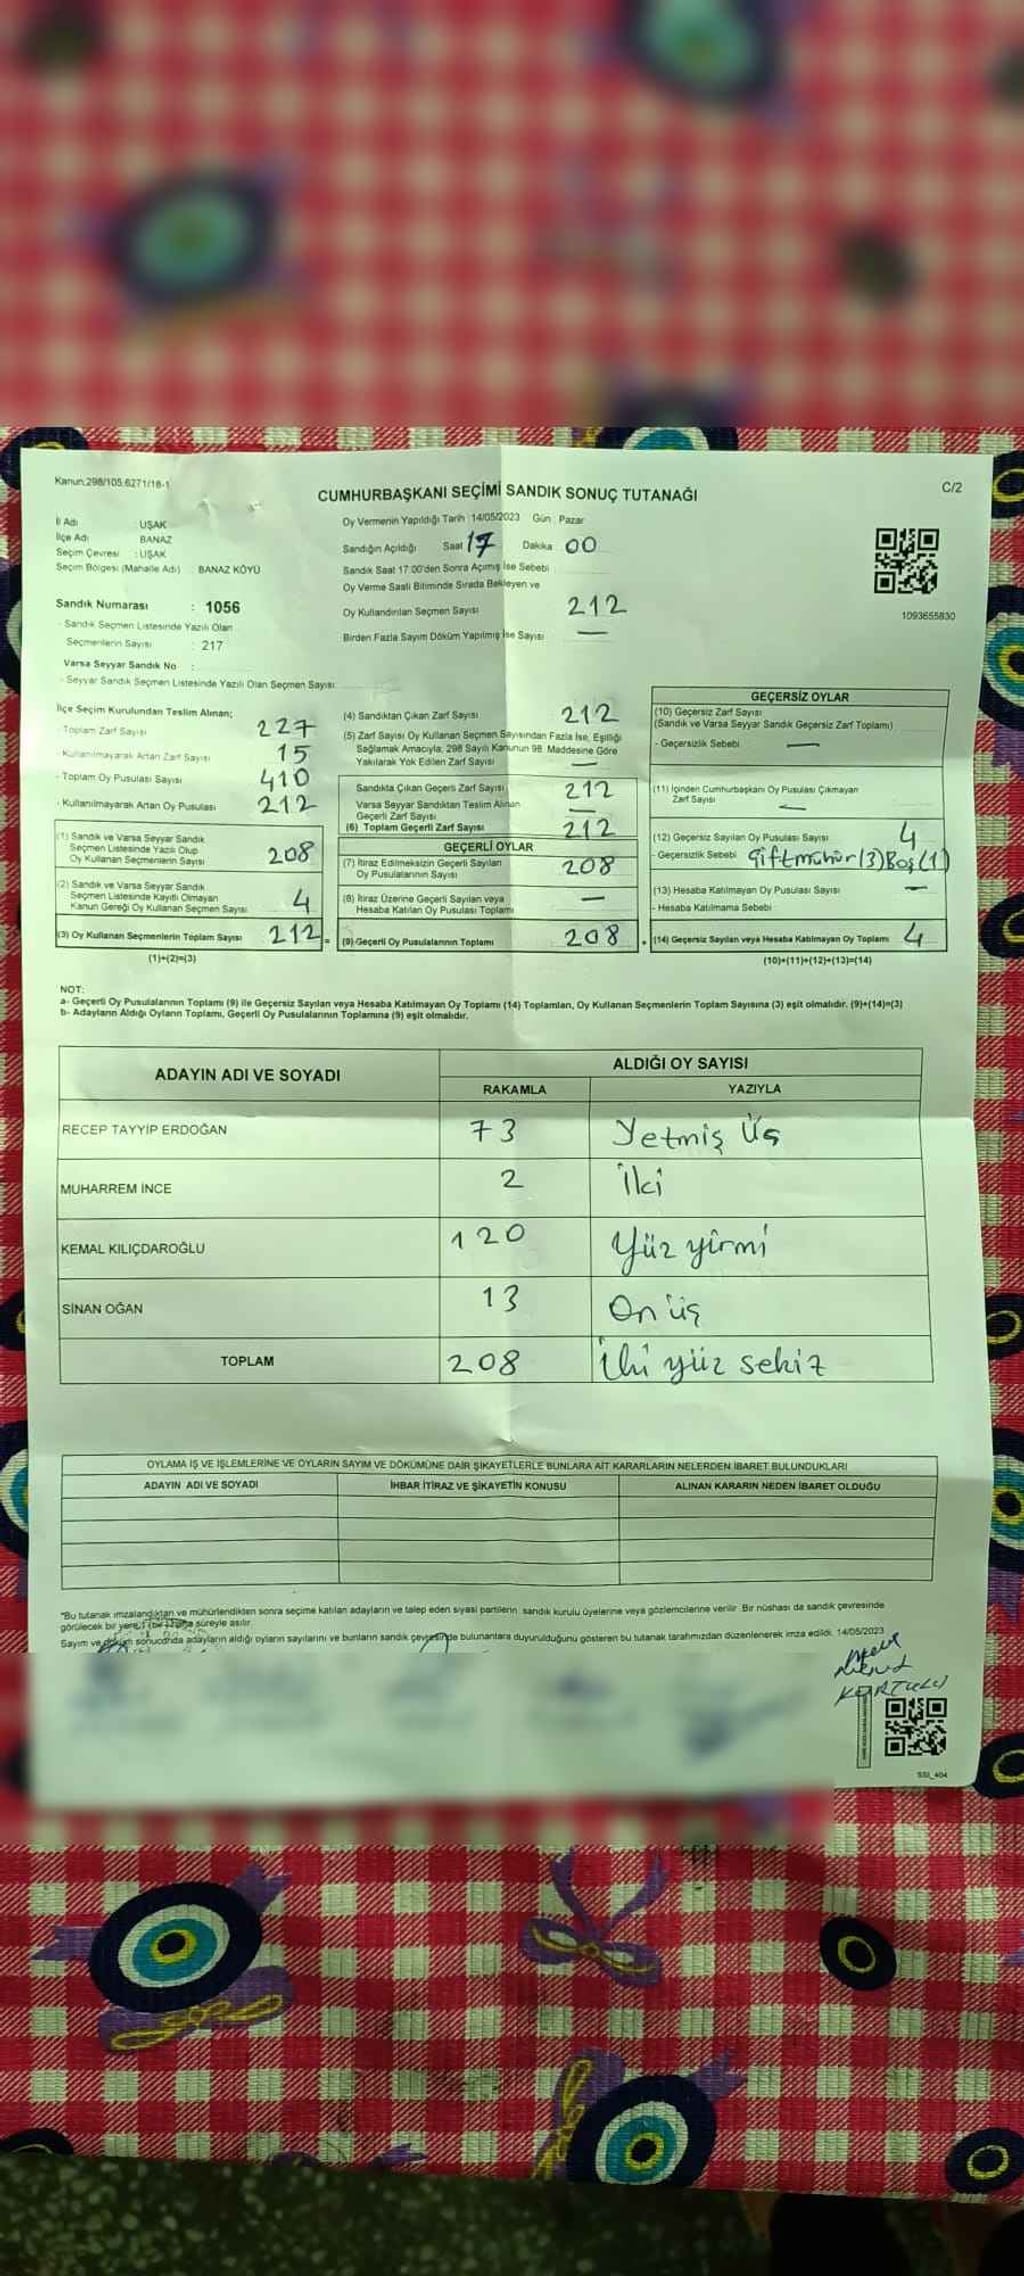 Kanun:298/105,6271/18-1
CUMHURBAŞKANI SEÇİMİ SANDIK SONUÇ TUTANAĞI
C/2
İl Adı UŞAK
İlçe Adı BANAZ
Seçim Çevresi : UŞAK
Seçim Bölgesi (Mahalle Adı) BANAZ KÖYÜ
Oy Vermenin Yapıldığı Tarih 14/05/2023 Gün Pazar
Sandığın Açıldığı Saat 17 Dakika 00
Sandık Saat 17:00'den Sonra Açımış İse Sebebi
Oy Verme Saati Bitiminde Sırada Bekleyen ve
Oy Kullandırılan Seçmen Sayısı 212
Birden Fazla Sayım Döküm Yapılmış İse Sayısı —
1093655830
Sandık Numarası : 1056
- Sandık Seçmen Listesinde Yazılı Olan
Seçmenlerin Sayısı : 217
Varsa Seyyar Sandık No :
- Seyyar Sandık Seçmen Listesinde Yazılı Olan Seçmen Sayısı
İlçe Seçim Kurulundan Teslim Alınan;
- Toplam Zarf Sayısı 227
- Kullanılmayarak Artan Zarf Sayısı 15
- Toplam Oy Pusulası Sayısı 410
- Kullanılmayarak Artan Oy Pusulası 212
(1) Sandık ve Varsa Seyyar Sandık
Seçmen Listesinde Yazılı Olup
Oy Kullanan Seçmenlerin Sayısı 208
(2) Sandık ve Varsa Seyyar Sandık
Seçmen Listesinde Kayıtlı Olmayan
Kanun Gereği Oy Kullanan Seçmen Sayısı 4
(3) Oy Kullanan Seçmenlerin Toplam Sayısı 212
(1)+(2)=(3)
(4) Sandıktan Çıkan Zarf Sayısı 212
(5) Zarf Sayısı Oy Kullanan Seçmen Sayısından Fazla İse, Eşitliği
Sağlamak Amacıyla, 298 Sayılı Kanunun 98. Maddesine Göre
Yakılarak Yok Edilen Zarf Sayısı —
Sandıkta Çıkan Geçerli Zarf Sayısı 212
Varsa Seyyar Sandıktan Teslim Alınan
Geçerli Zarf Sayısı —
(6) Toplam Geçerli Zarf Sayısı 212
GEÇERLİ OYLAR
(7) İtiraz Edilmeksizin Geçerli Sayılan
Oy Pusulalarının Sayısı 208
(8) İtiraz Üzerine Geçerli Sayılan veya
Hesaba Katılan Oy Pusulası Toplamı —
(9) Geçerli Oy Pusulalarının Toplamı 208
GEÇERSİZ OYLAR
(10) Geçersiz Zarf Sayısı
(Sandık ve Varsa Seyyar Sandık Geçersiz Zarf Toplamı)
- Geçersizlik Sebebi —
(11) İçinden Cumhurbaşkanı Oy Pusulası Çıkmayan
Zarf Sayısı —
(12) Geçersiz Sayılan Oy Pusulası Sayısı 4
- Geçersizlik Sebebi Çiftmühür(3)Boş(1)
(13) Hesaba Katılmayan Oy Pusulası Sayısı —
- Hesaba Katılmama Sebebi
(14) Geçersiz Sayılan veya Hesaba Katılmayan Oy Toplamı 4
(10)+(11)+(12)+(13)=(14)
NOT:
a- Geçerli Oy Pusulalarının Toplamı (9) ile Geçersiz Sayılan veya Hesaba Katılmayan Oy Toplamı (14) Toplamları, Oy Kullanan Seçmenlerin Toplam Sayısına (3) eşit olmalıdır. (9)+(14)=(3)
b- Adayların Aldığı Oyların Toplamı, Geçerli Oy Pusulalarının Toplamına (9) eşit olmalıdır.
ADAYIN ADI VE SOYADI
ALDIĞI OY SAYISI
RAKAMLA YAZIYLA
RECEP TAYYİP ERDOĞAN 73 Yetmiş Üç
MUHARREM İNCE 2 İki
KEMAL KILIÇDAROĞLU 120 Yüz yirmi
SİNAN OĞAN 13 On üç
TOPLAM 208 İki yüz sekiz
OYLAMA İŞ VE İŞLEMLERİNE VE OYLARIN SAYIM VE DÖKÜMÜNE DAİR ŞİKAYETLERLE BUNLARA AİT KARARLARIN NELERDEN İBARET BULUNDUKLARI
ADAYIN ADI VE SOYADI İHBAR İTİRAZ VE ŞİKAYETİN KONUSU ALINAN KARARIN NEDEN İBARET OLDUĞU
*Bu tutanak imzalandıktan ve mühürlendikten sonra seçime katılan adayların ve talep eden siyasi partilerin sandık kurulu üyelerine veya gözlemcilerine verilir. Bir nüshası da sandık çevresinde
görülecek bir yere 1 (bir) hafta süreyle asılır.
Sayım ve döküm sonucunda adayların aldığı oyların sayılarını ve bunların sandık çevresinde bulunanlara duyurulduğunu gösteren bu tutanak tarafımızdan düzenlenerek imza edildi. 14/05/2023
SSI_404